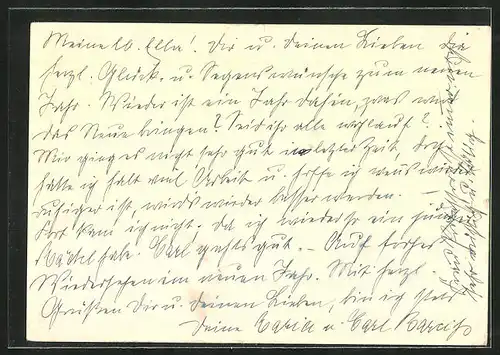 Meine lb. Ella! Dir u. Deinen Lieben die
herzl. Glück- u. Segenswünsche zum neuen
Jahr. Wieder ist ein Jahr dahin, was wird
das Neue bringen? Seid ihr alle wohlauf?
Mir ging es nicht sehr gut in letzter Zeit, doch
hatte ich halt viel Arbeit u. hoffe ich wenn's wieder
ruhiger ist, wird's wieder besser werden. –
Fort kann ich nicht, da ich wieder ein
Mädel habe. Carl geht's gut. – Auf frohes
Wiedersehen im neuen Jahr. Mit herzl.
Grüßen Dir u. Deinen Lieben, bin ich stets
Deine Maria u. Carl